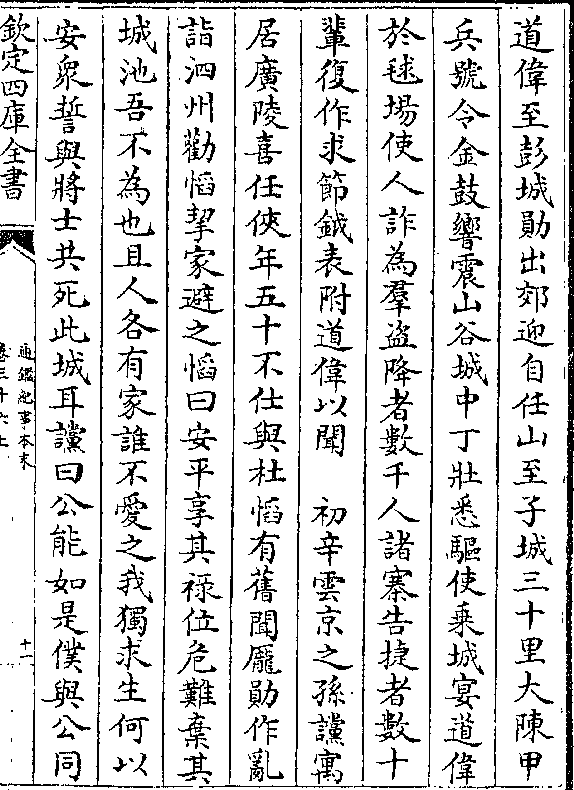 道偉至彭城勛出郊迎自任山至子城三十里大陳甲
兵號令金鼓響震山谷城中丁壯悉驅使乗城宴道偉
於毬場使人詐為羣盗降者數千人諸寨告捷者數十
輩復作求節鉞表附道偉以聞　初辛雲京之孫讜寓
居廣陵喜任俠年五十不仕與杜慆有舊聞龎勛作亂
詣泗州勸慆挈家避之慆曰安平享其禄位危難棄其
城池吾不為也且人各有家誰不愛之我獨求生何以
安衆誓與將士共死此城耳讜曰公能如是僕與公同
欽定四庫全書
通鑑紀事本末
卷三十六上
十一